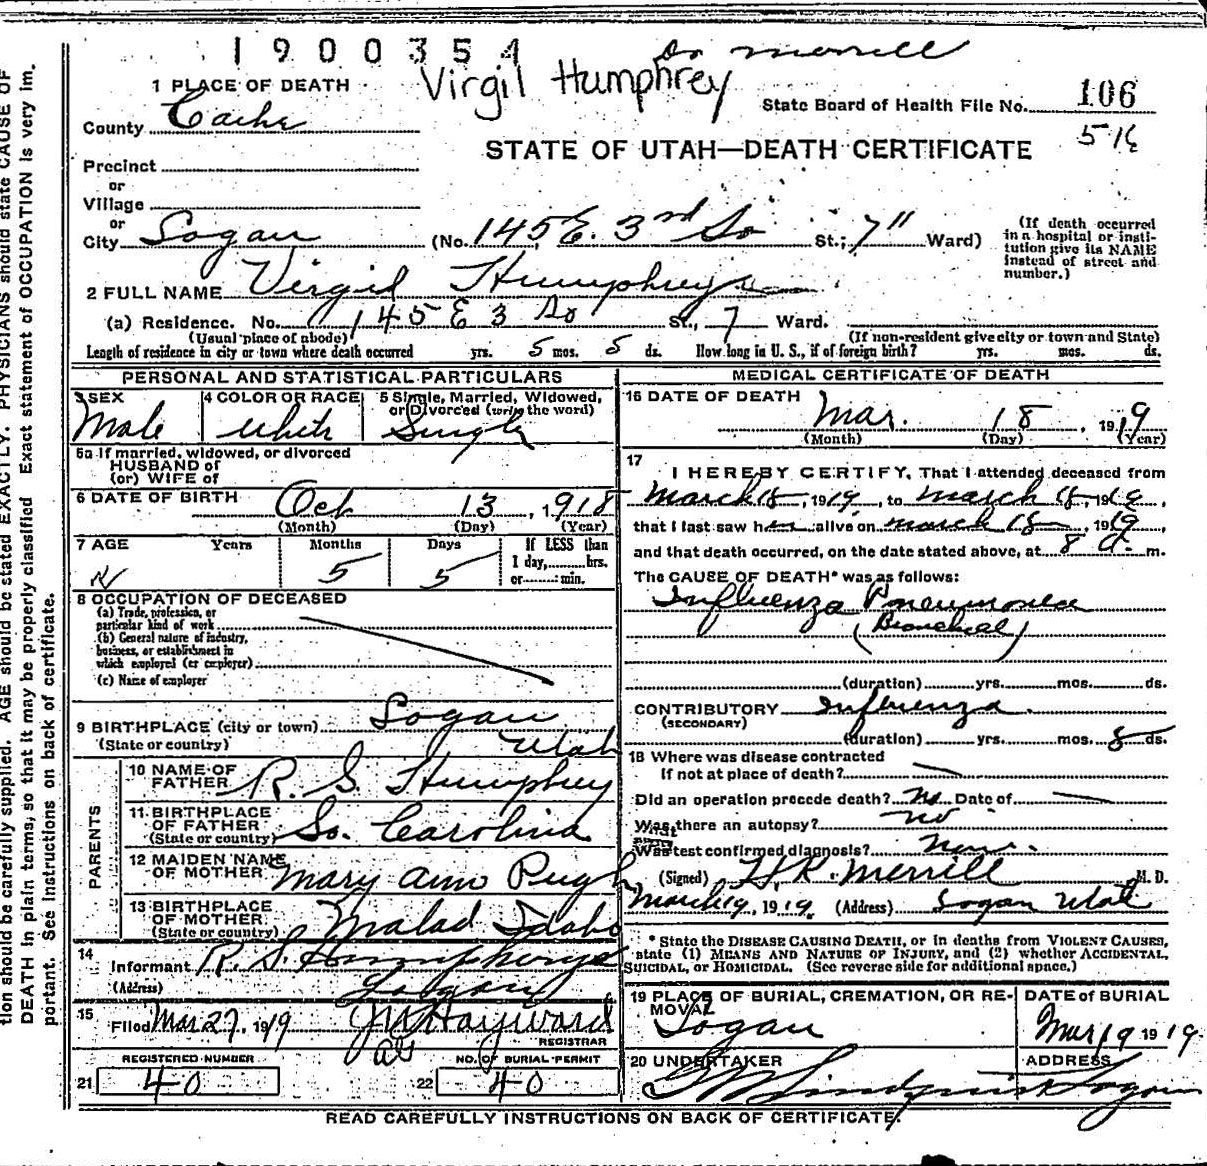 1900354
Dr Merrill
Virgil Humphrey
1 PLACE OF DEATH
State Board of Health File No. 106
County Cache
516
STATE OF UTAH—DEATH CERTIFICATE
Precinct
or
Village
or
City Logan (No. 145 E. 3rd So St.; 7" Ward)
(If death occurred in a hospital or insti-
tution give its NAME
instead of street and
number.)
2 FULL NAME Virgil Humphreys
(a) Residence. No. 145 E 3 So St., 7 Ward.
(Usual place of abode) (If non-resident give city or town and State)
Length of residence in city or town where death occurred yrs. 5 mos. 5 ds. How long in U. S., if of foreign birth? yrs. mos. ds.
PERSONAL AND STATISTICAL PARTICULARS
3 SEX
Male
4 COLOR OR RACE
White
5 Single, Married, Widowed,
or Divorced (write the word)
Single
5a If married, widowed, or divorced
HUSBAND of
(or) WIFE of
6 DATE OF BIRTH Oct 13, 1918
(Month) (Day) (Year)
7 AGE Years Months Days If LESS than
1 day, hrs.
or min.
5 5
8 OCCUPATION OF DECEASED
(a) Trade, profession, or
particular kind of work
(b) General nature of industry,
business, or establishment in
which employed (or employer)
(c) Name of employer
9 BIRTHPLACE (city or town) Logan
(State or country) Utah
PARENTS
10 NAME OF
FATHER R. S. Humphrey
11 BIRTHPLACE
OF FATHER
(State or country) So. Carolina
12 MAIDEN NAME
OF MOTHER Mary Ann Pugh
13 BIRTHPLACE
OF MOTHER
(State or country) Malad Idaho
14
Informant R. S. Humphreys
(Address) Logan
15
Filed Mar 27, 1919 J W Hayward
REGISTRAR
REGISTERED NUMBER
NO. OF BURIAL PERMIT
21 40
22 40
MEDICAL CERTIFICATE OF DEATH
16 DATE OF DEATH
Mar. 18, 1919
(Month) (Day) (Year)
17
I HEREBY CERTIFY, That I attended deceased from
March 18, 1919, to March 18, 1919,
that I last saw him alive on March 18, 1919,
and that death occurred, on the date stated above, at 8 a. m.
The CAUSE OF DEATH* was as follows:
Influenza Pneumonia
(Bronchial)
(duration) yrs. mos. ds.
CONTRIBUTORY Influenza
(SECONDARY)
(duration) yrs. mos. 8 ds.
18 Where was disease contracted
If not at place of death?
Did an operation precede death? No Date of
Was there an autopsy? no
What test confirmed diagnosis? None.
(Signed) H. R. Merrill M. D.
March 19, 1919. (Address) Logan Utah
* State the DISEASE CAUSING DEATH, or in deaths from VIOLENT CAUSES,
state (1) MEANS AND NATURE OF INJURY, and (2) whether ACCIDENTAL,
SUICIDAL, or HOMICIDAL. (See reverse side for additional space.)
19 PLACE OF BURIAL, CREMATION, OR RE-
MOVAL
Logan
DATE of BURIAL
Mar 19 1919.
20 UNDERTAKER
Lindquist
ADDRESS
Logan
READ CAREFULLY INSTRUCTIONS ON BACK OF CERTIFICATE.
tion should be carefully supplied. AGE should be stated EXACTLY. PHYSICIANS should state CAUSE OF
DEATH in plain terms, so that it may be properly classified Exact statement of OCCUPATION is very im.
portant. See instructions on back of certificate.